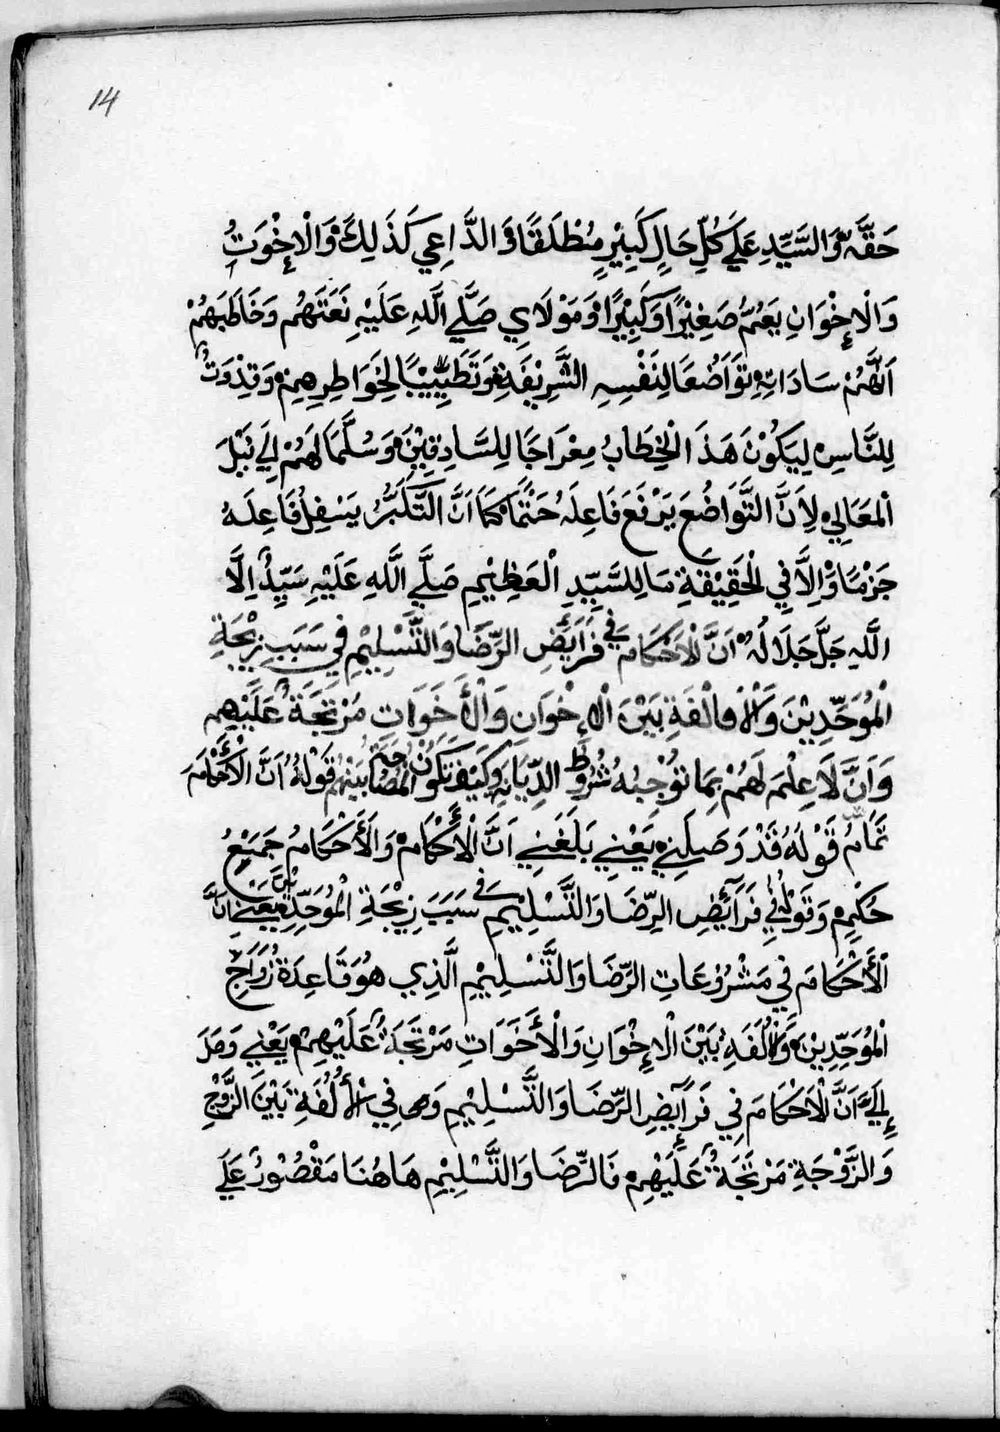 14
حَقَّهُ وَالسَّيِّدِ عَلَي كُلِّ حَالٍ كَبِيْرٍ مُطْلَقًا وَ الدَّاعِي كَذَلِكَ وَالْاِخْوَتِ
وَالْاِخْوَانِ يَعُمُّ صَغِيْرًا وَكَبِيْرًا وَمَوْلَايِ صَلَّي اللَّهِ عَلَيْهِ نَعَتَهُم وَخَاطَبَهُمْ
اَنَّهُمْ سَادَاتِهِ تَوَاضُعًا لِنَفْسِهِ الشَّرِيْفَةِ وَتَطْيِيْبًا لِخَوَاطِرِهِمْ وَقِدْوَتُ
لِلنَّاسِ لِيَكُوْنَ هَذَ الْخِطَابُ مِعْرَاجًا لِلسَّادِقِيْنَ وَسُلَّمًا لَهُمْ اِلَي نَيْلَ
الْمَعَالِي لِاَنَّ التَّوَاضُعَ يَرْفَعَ فَاعِلَهُ حَتْمًا كَمَا اَنَّ التَّكَبُّرُ يَسْفِلُ فَاعِلَهُ
جَزْمًا وَاِلَّا فِي الْحَقِيْقَةِ مَا لِلسَّيِّدِ الْعَظِيْمِ صَلَّي اللَّهِ عَلَيْهِ سَيِّدٌ اِلَّا
اللَّهِ جَلَّ جَلَالُهُ اَنَّ الْاَحْكَامَ فِي فَرَايَضِ الرِّضَا وَالتَّسْلِيْمِ فِي سَبَبِ زِيْجَةِ
الْمُوَحِّدِيْنَ وَالْاُلْفَةِ بَيْنَ الْاِخْوَانِ وَالْأَخَوَاتِ مُرْتَجَةٌ عَلَيْهِم
وَاَنَّ لَا عِلْمَ لَهُمْ بِمَا تُوْجِبُهُ شُرُوْطُ الدِّيَانَةِ وَكَيْفَ تَكُوْنُ الْمُصَاحَبَةُ بَيْنَهُم قَوْلُهُ اَنَّ الْأَحْكَامَ
تَمَامُ قَوْلُهُ قَدْ وَصَلَنِي يَعْنِي بَلَغَنِي اَنَّ الْأَحْكَامْ وَالْأَحْكَامُ جَمِيْعُ
حُكْمِ وَقَوْلُهُ فِي فَرَآيَضِ الرِّضَا وَالتَّسْلِيْمِ فِي سَبَبَ زِيْجَةِ الْمُوَحِّدِيْنَ يَعْنِي اَنَّ
الْأَحْكَامَ فِي مَشْرُوْعَاتِ الرِّضَا وَالتَّسْلِيْمِ الَّذِي هُوَ قَاعِدَةُ زَوَاجِ
الْمُوَحِّدِيْنَ وَالْاُلْفَةِ بَيْنَ الْاِخْوَانِ وَالْأَخَوَاتِ مَرْتَجَةٌ عَلَيْهِمْ يَعْنِي وَصَلَ
إِلَيَّ اَنَّ الْاَحْكَامَ فِي فَرَآيَضِ الرِّضَا وَالتَّسْلِيْمِ وَهِى فِي الْأُلُفَةِ بَيْنَ الزَّوْجِ
وَالزَّوْجَةِ مَرْتَجَةٌ عَلَيْهِمْ فَالرِّضَا وَالتَّسْلِيْمِ هَاهُنَا مَقْصُوْرُ عَلَي